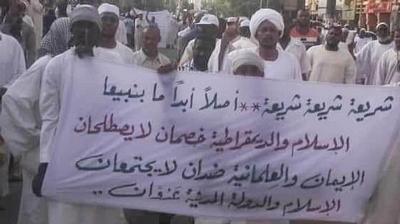 شريعة شريعة شريعة ** أصلاً أبداً ما بنبيعا
الإسلام والديمقراطية خصمان لا يصطلحان
الإيمان والعلمانية ضدان لا يجتمعان
الإسلام والدولة المدنية